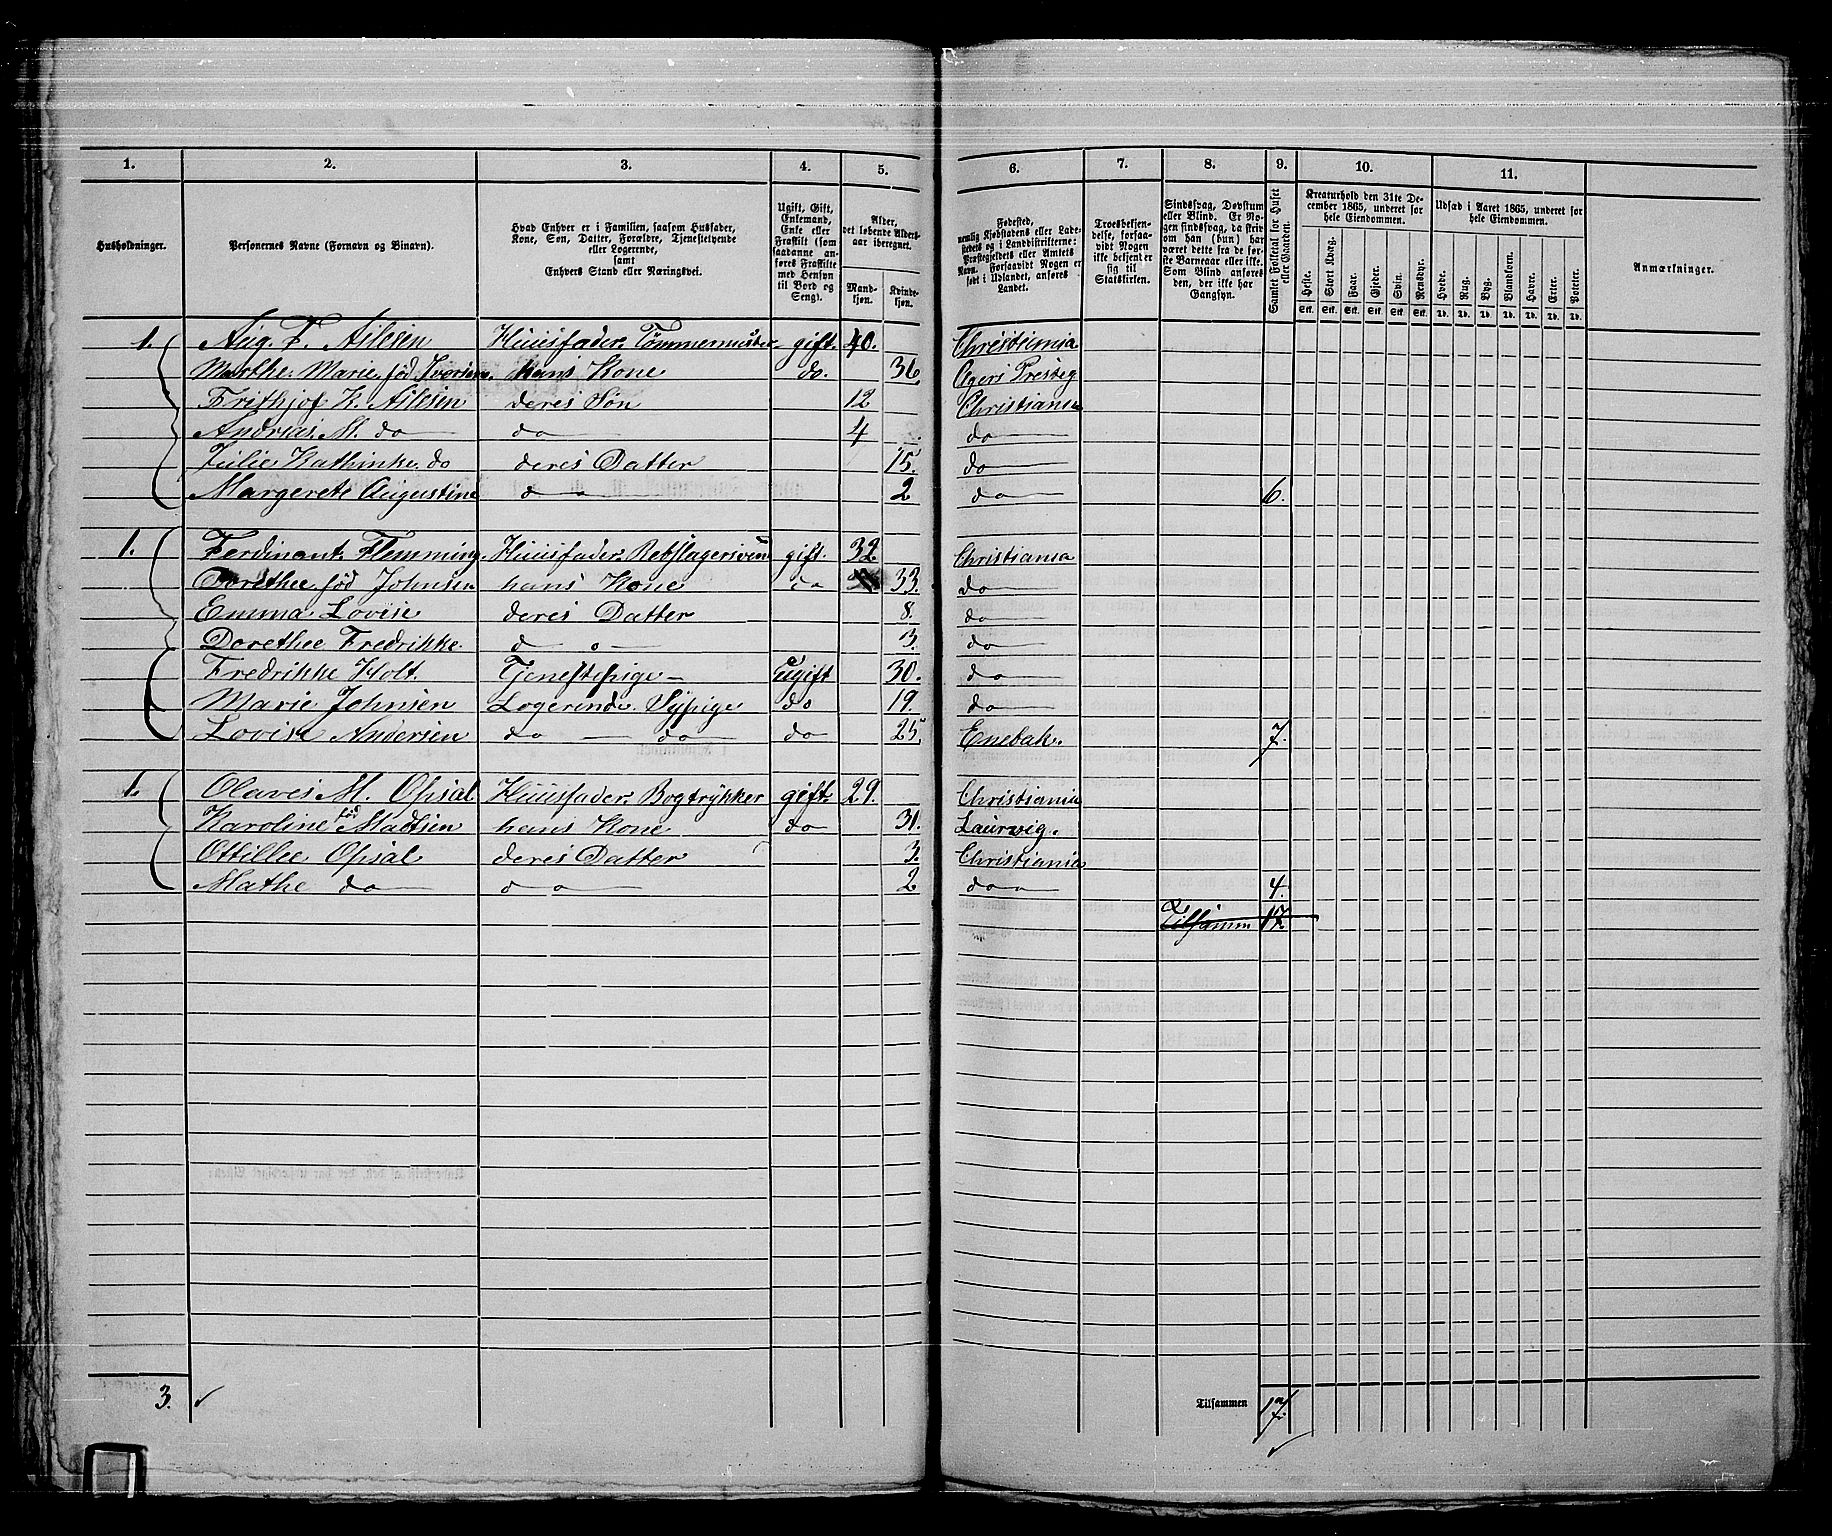 1. 2. 3. 4. 5. 6. 7. 8. 9. 10. 11.
Husholdninger.
Personernes Navne (Fornavn og Binavn).
Hvad Enhver er i Familien, saasom Husfader,
Kone, Søn, Datter, Forældre, Tjenestetyende
eller Logerende,
samt
Enhvers Stand eller Næringsvei.
Ugift, Gift,
Enkemand,
Enke eller
Fraskilt (som
saadanne an-
føres Fraskilte
med Hensyn
til Bord og
Seng).
Alder,
det løbende Alders-
aar iberegnet.
Mand-
kjøn.
Kvinde-
kjøn.
Fødested,
nemlig Kjøbstadens eller Lade-
stedets og i Landdistrikterne:
Præstegjeldets eller Amtets
Navn. Forsaavidt Nogen er
født i Udlandet, anføres
Landet.
Troesbekjen-
delse, forsaa-
vidt Nogen
ikke bekjender
sig til
Statskirken.
Sindssvag, Døvstum
eller Blind. Er No-
gen sindssvag, da skriv
om han (hun) har
været dette fra de før-
ste Barneaar eller ikke.
Som Blind anføres
den, der ikke har
Gangsyn.
Samlet Folketal for Huset
eller Gaarden.
Kreaturhold den 31te De-
cember 1865, underet for
hele Eiendommen.
Heste. Stort Kvæg. Faar. Gjeder. Sviin. Rensdyr.
Stk. Stk. Stk. Stk. Stk. Stk.
Udsæd i Aaret 1865, underet for
hele Eiendommen.
Hvede. Rug. Byg. Blandkorn. Havre. Erter. Poteter.
Td. Td. Td. Td. Td. Td. Td.
Anmærkninger.
1. Aug. F. Ailsen Huusfader. Tømmermester gift. 40. Christiania
Marthe Marie fød Iversen. hans Kone do. 36. Agers Presteg
Frithjof K. Ailsen deres Søn 12 Christiania
Andreas M. do do 4 do
Julie Kathinke do deres Datter 15. do
Margerete Augustine do 2 do 6.
1. Ferdinant Flemming. Huusfader. Rebslagersvend gift. 32. Christiania
Dorethee fød Johnsen hans Kone do 33. do
Emma Lovise deres Datter 8. do
Dorethee Fredrikke. do 3. do
Fredrikke Holt. Tjenestepige Ugift 30. do
Marie Johnsen Logerende. Sypige do 19. do
Lovise Andersen do do do 25 Enebak. 7.
1. Olaves M. Opsal Huusfader. Bogtrykker gift. 29. Christiania
Karoline fød Madsen hans Kone do 31. Laurvig.
Ottillee Opsal deres Datter 3. Christiania
Mathe do do 2 do 4.
Tilsamm 17.
3. Tilsammen 17.